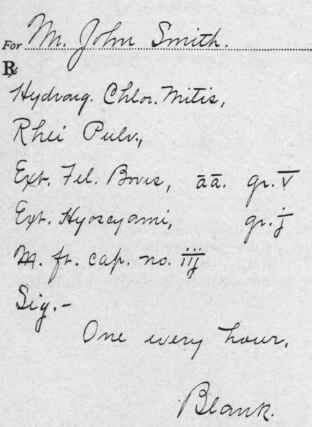 For M. John Smith.
℞
Hydrarg. Chlor. Mitis,
Rhei Pulv.,
Ext. Fel. Bovis, āā. gr. v
Ext. Hyoscyami, gr. j
M. ft. cap. no. iij
Sig.-
One every hour.
Blank.